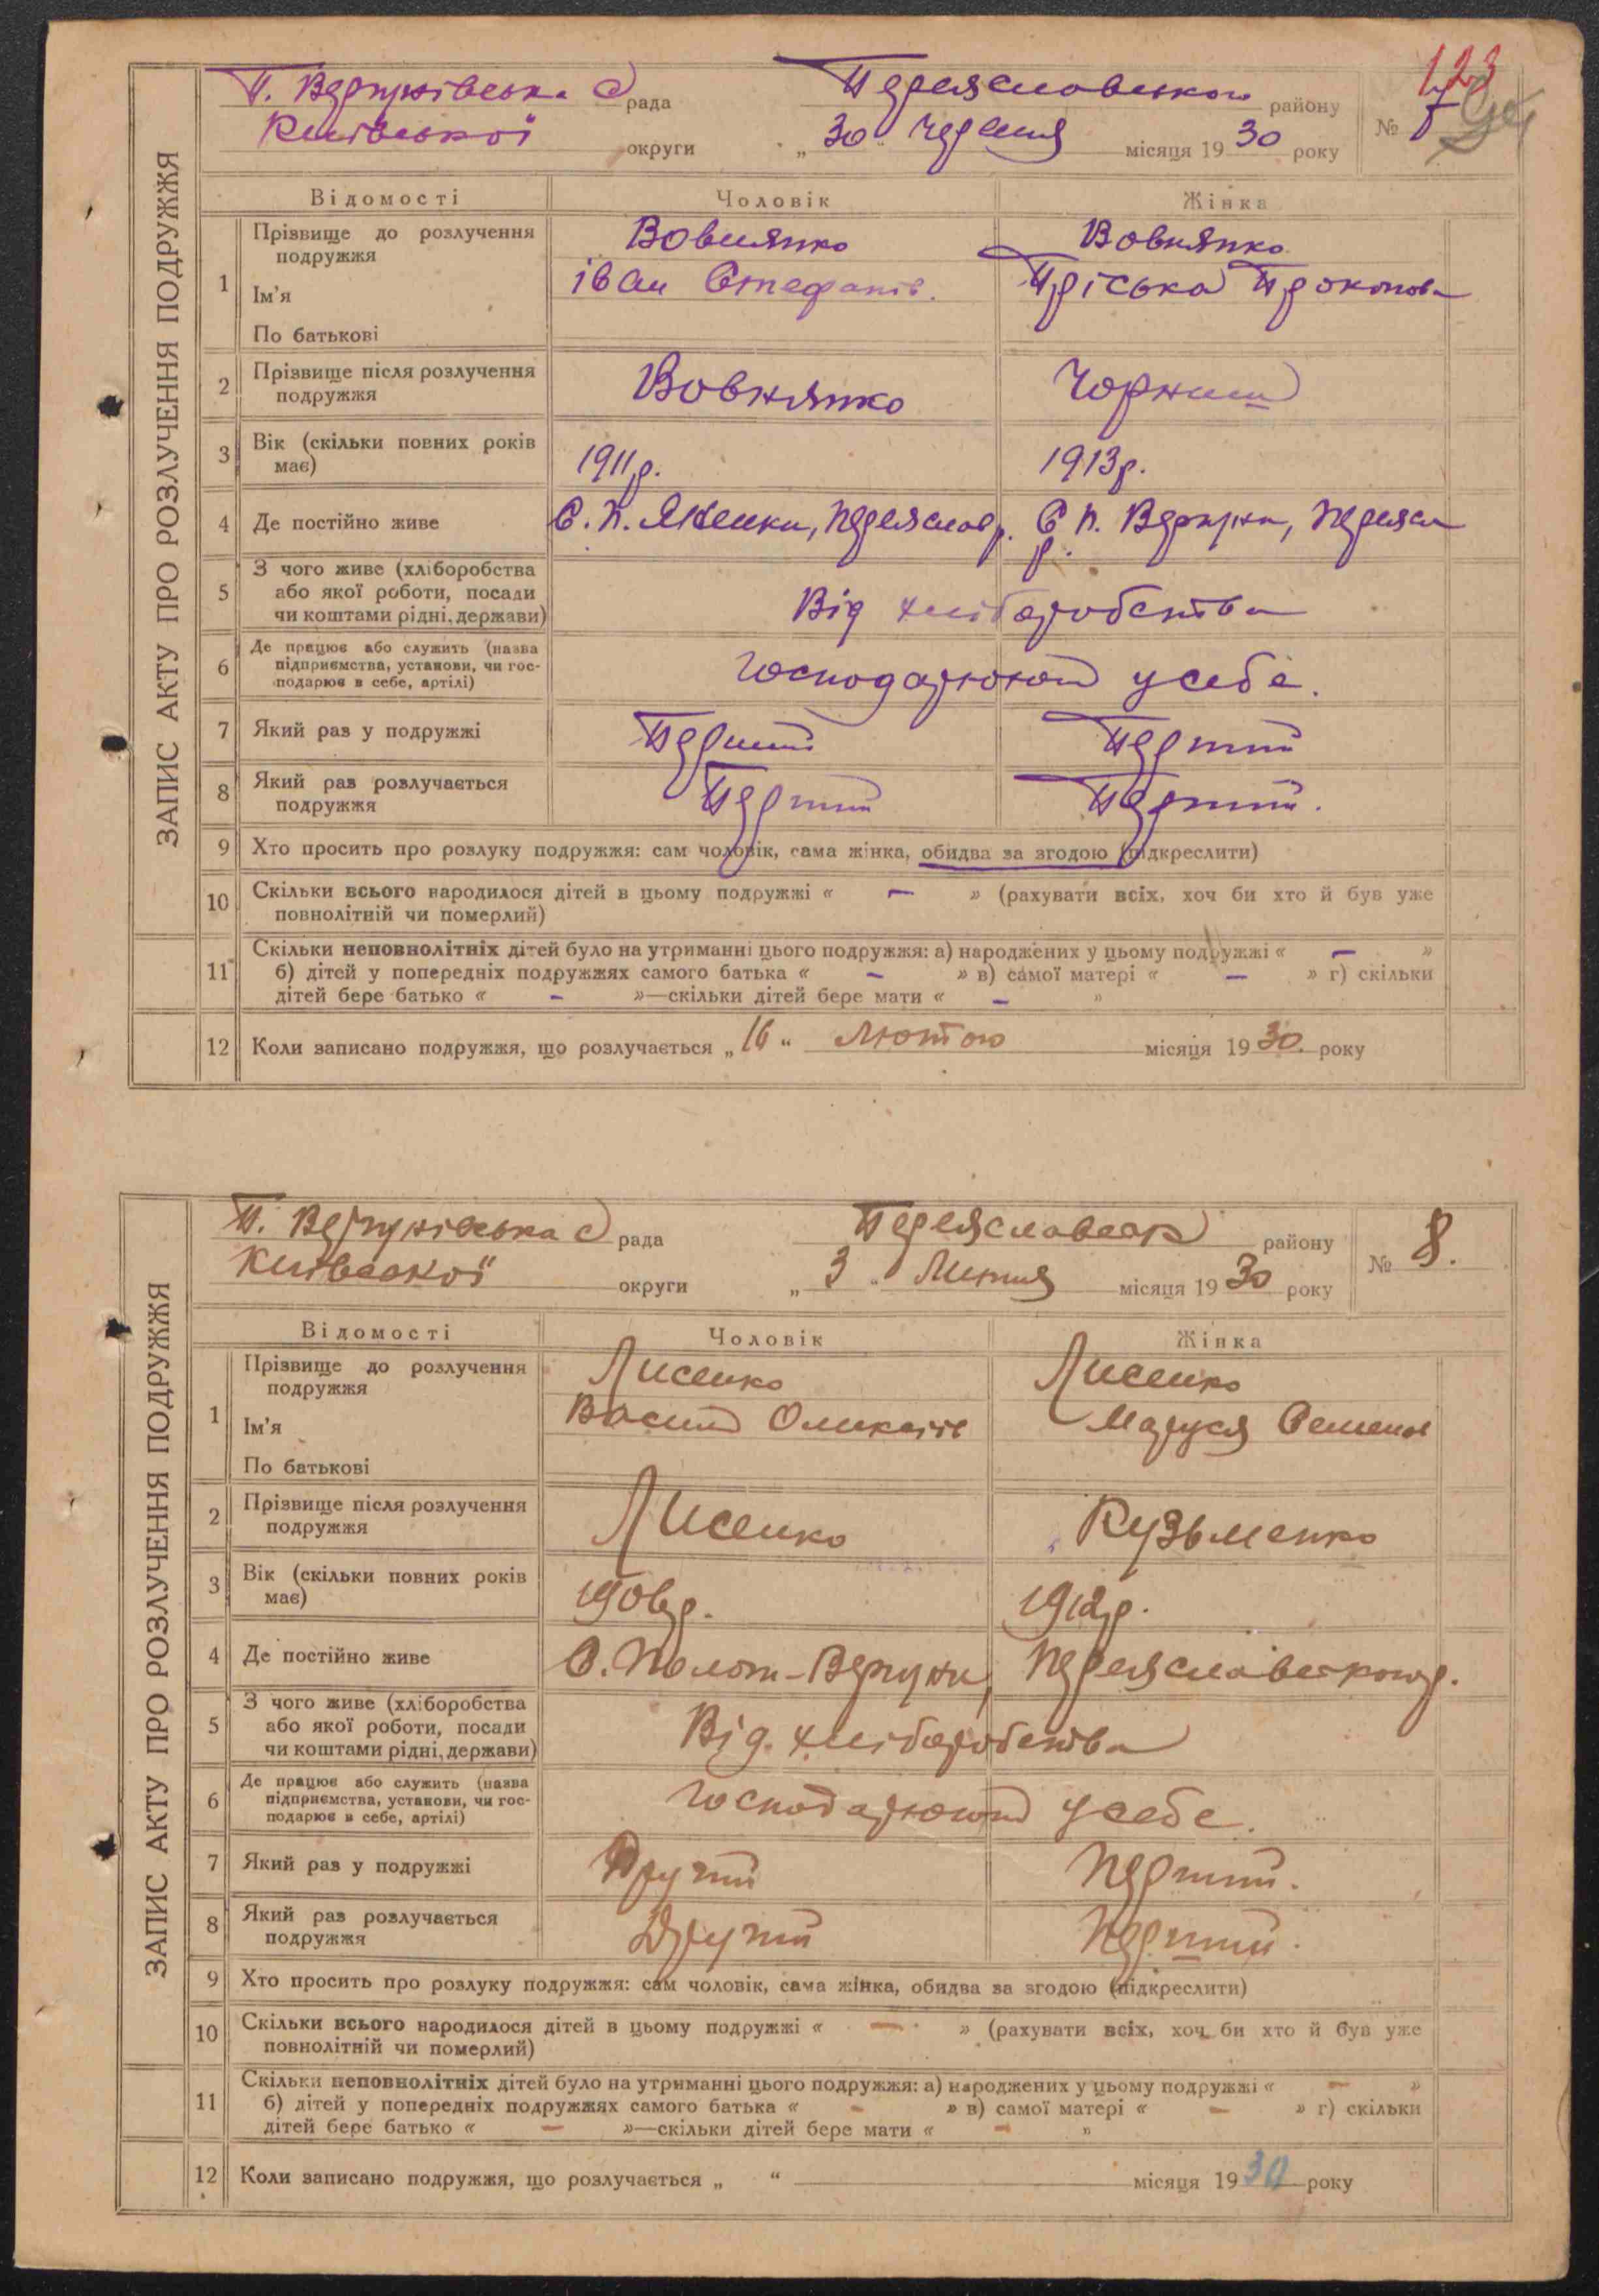 123
П. Вергунівська С рада Переяславського району № 7
Київської округи „30“ червня місяця 1930 року
ЗАПИС АКТУ ПРО РОЗЛУЧЕННЯ ПОДРУЖЖЯ
Відомості Чоловік Жінка
1 Прізвище до розлучення подружжя Вовнянко Вовнянко
Ім'я іван Стефанів. Пріська Прокопова
По батькові
2 Прізвище після розлучення подружжя Вовнянко Чорниш
3 Вік (скільки повних років має) 1911р. 1913р.
4 Де постійно живе С. П. Яненки, Переяслав р. С П. Вергуни, Переясл р.
5 З чого живе (хліборобства
або якої роботи, посади
чи коштами рідні, держави) Від хліборобства
6 Де працює або служить (назва
підприємства, установи, чи гос-
подарює в себе, артілі) Господарюють у себе.
7 Який раз у подружжі Перший Перший
8 Який раз розлучається подружжя Перший Перший.
9 Хто просить про розлуку подружжя: сам чоловік, сама жінка, обидва за згодою (підкреслити)
10 Скільки всього народилося дітей в цьому подружжі « — » (рахувати всіх, хоч би хто й був уже
повнолітній чи померлий)
11 Скільки неповнолітніх дітей було на утриманні цього подружжя: а) народжених у цьому подружжі « — »
б) дітей у попередніх подружжях самого батька « - » в) самої матері « — » г) скільки
дітей бере батько « - »—скільки дітей бере мати « - »
12 Коли записано подружжя, що розлучається „16“ Лютого місяця 1930 року
П. Вергунівська С рада Переяславськ району № 8.
Київської округи „3“ Липня місяця 1930 року
ЗАПИС АКТУ ПРО РОЗЛУЧЕННЯ ПОДРУЖЖЯ
Відомості Чоловік Жінка
1 Прізвище до розлучення подружжя Лисенко Лисенко
Ім'я Василь Маруся Семенов
По батькові
2 Прізвище після розлучення подружжя Лисенко Кузьменко
3 Вік (скільки повних років має) 1906р. 1912р.
4 Де постійно живе С. Полот-Вергуни, Переяславського р.
5 З чого живе (хліборобства
або якої роботи, посади
чи коштами рідні, держави) Від. хліборобства
6 Де працює або служить (назва
підприємства, установи, чи гос-
подарює в себе, артілі) Господарюють у себе.
7 Який раз у подружжі Другий Перший.
8 Який раз розлучається подружжя Другий Перший.
9 Хто просить про розлуку подружжя: сам чоловік, сама жінка, обидва за згодою (підкреслити)
10 Скільки всього народилося дітей в цьому подружжі « — » (рахувати всіх, хоч би хто й був уже
повнолітній чи померлий)
11 Скільки неповнолітніх дітей було на утриманні цього подружжя: а) народжених у цьому подружжі « — »
б) дітей у попередніх подружжях самого батька « - » в) самої матері « — » г) скільки
дітей бере батько « — »—скільки дітей бере мати « - »
12 Коли записано подружжя, що розлучається „ “ місяця 1930 року